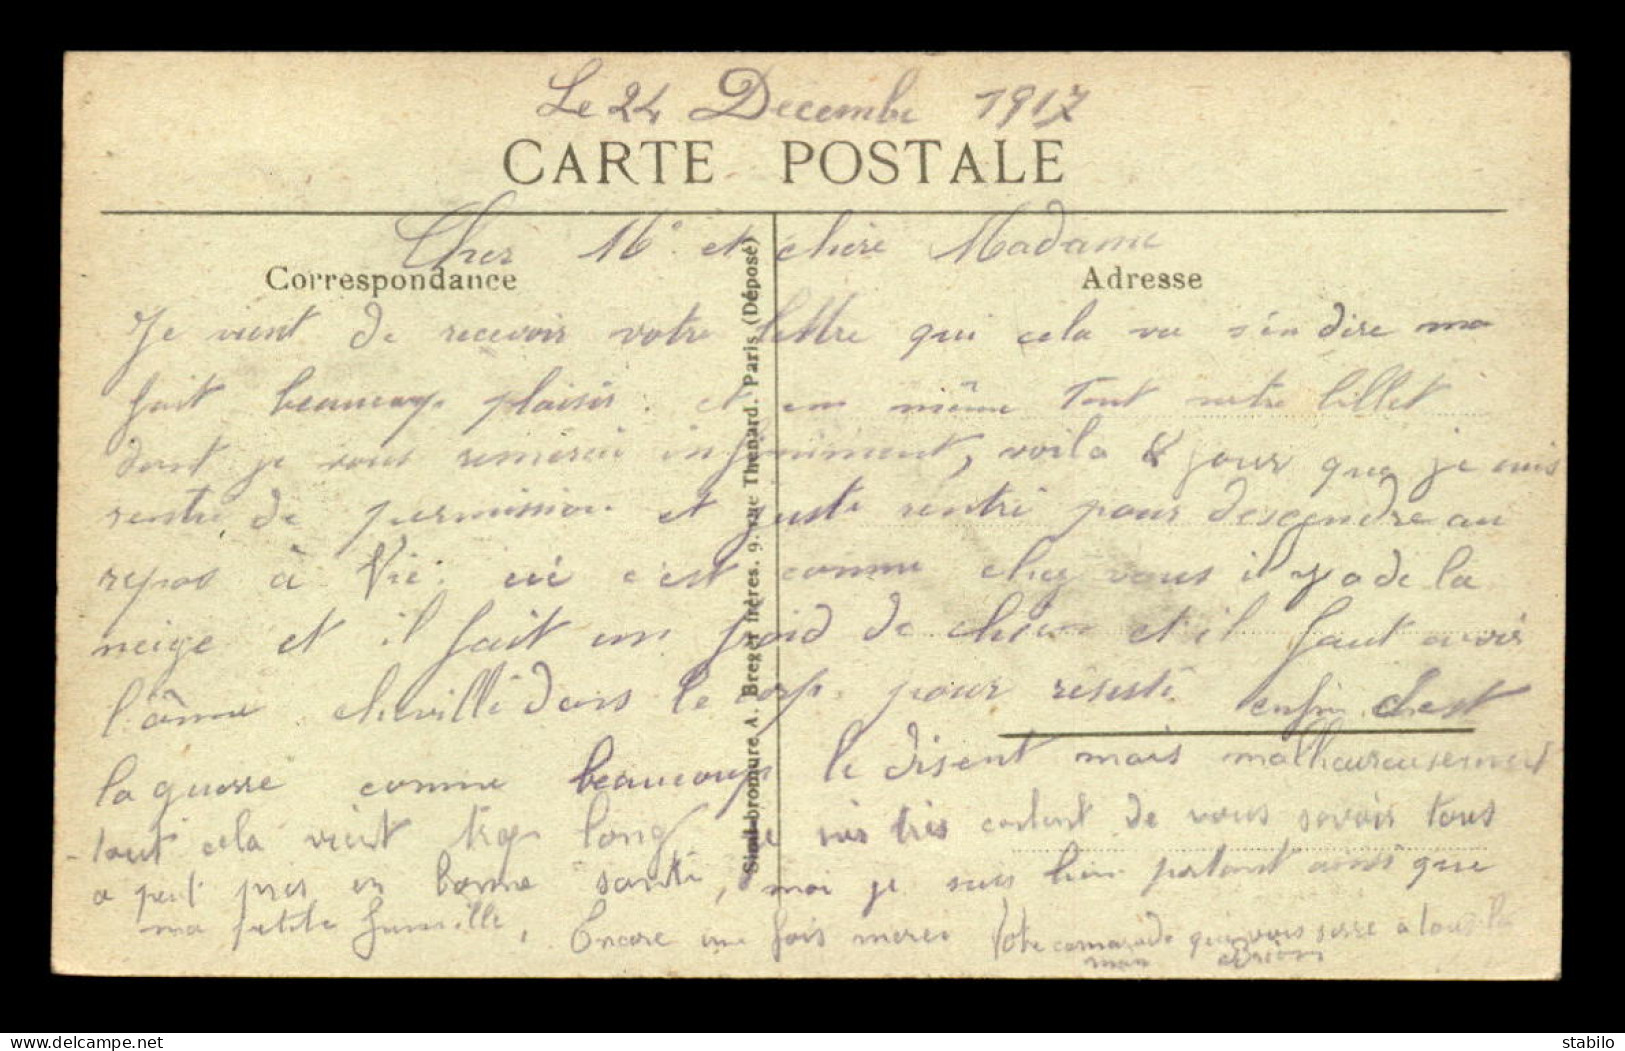 Le 24 Decembre 1917
CARTE POSTALE
Cher Mr et chère Madame
Correspondance
Adresse
Je vient de recevoir votre lettre qui cela va s'en dire ma
fait beaucoup plaisir. et en même tout votre billet
dont je vous remercie infiniment, voila 8 jours que je suis
rentré de permission et juste rentré pour descendre au
repos à Vic. c'est comme chez vous il y a de la
neige et il fait un froid de chien et il faut avoir
l'âme chevillé dans le corp. pour résisté enfin c'est
la guerre comme beaucoup le disent mais malheureusement
tout cela vient trop long je suis très content de vous savoir tous
a peut pres en bonne santé, moi je suis bien portant ainsi que
ma petite famille, Encore une fois merci Votre camarade qui vous serre a tous la
main
Simil-bromure A. Breger frères. 9. rue Thenard. Paris (Déposé)
stabilo